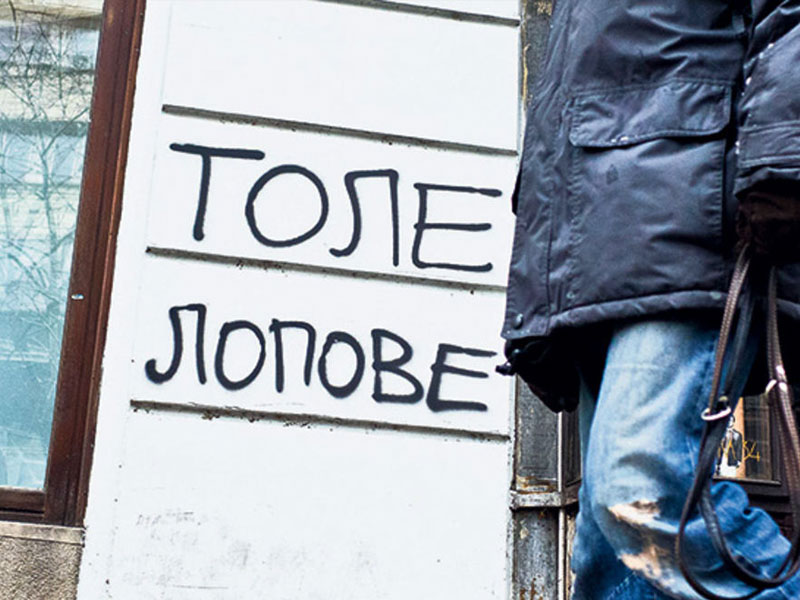 ТОЛЕ
ЛОПОВЕ